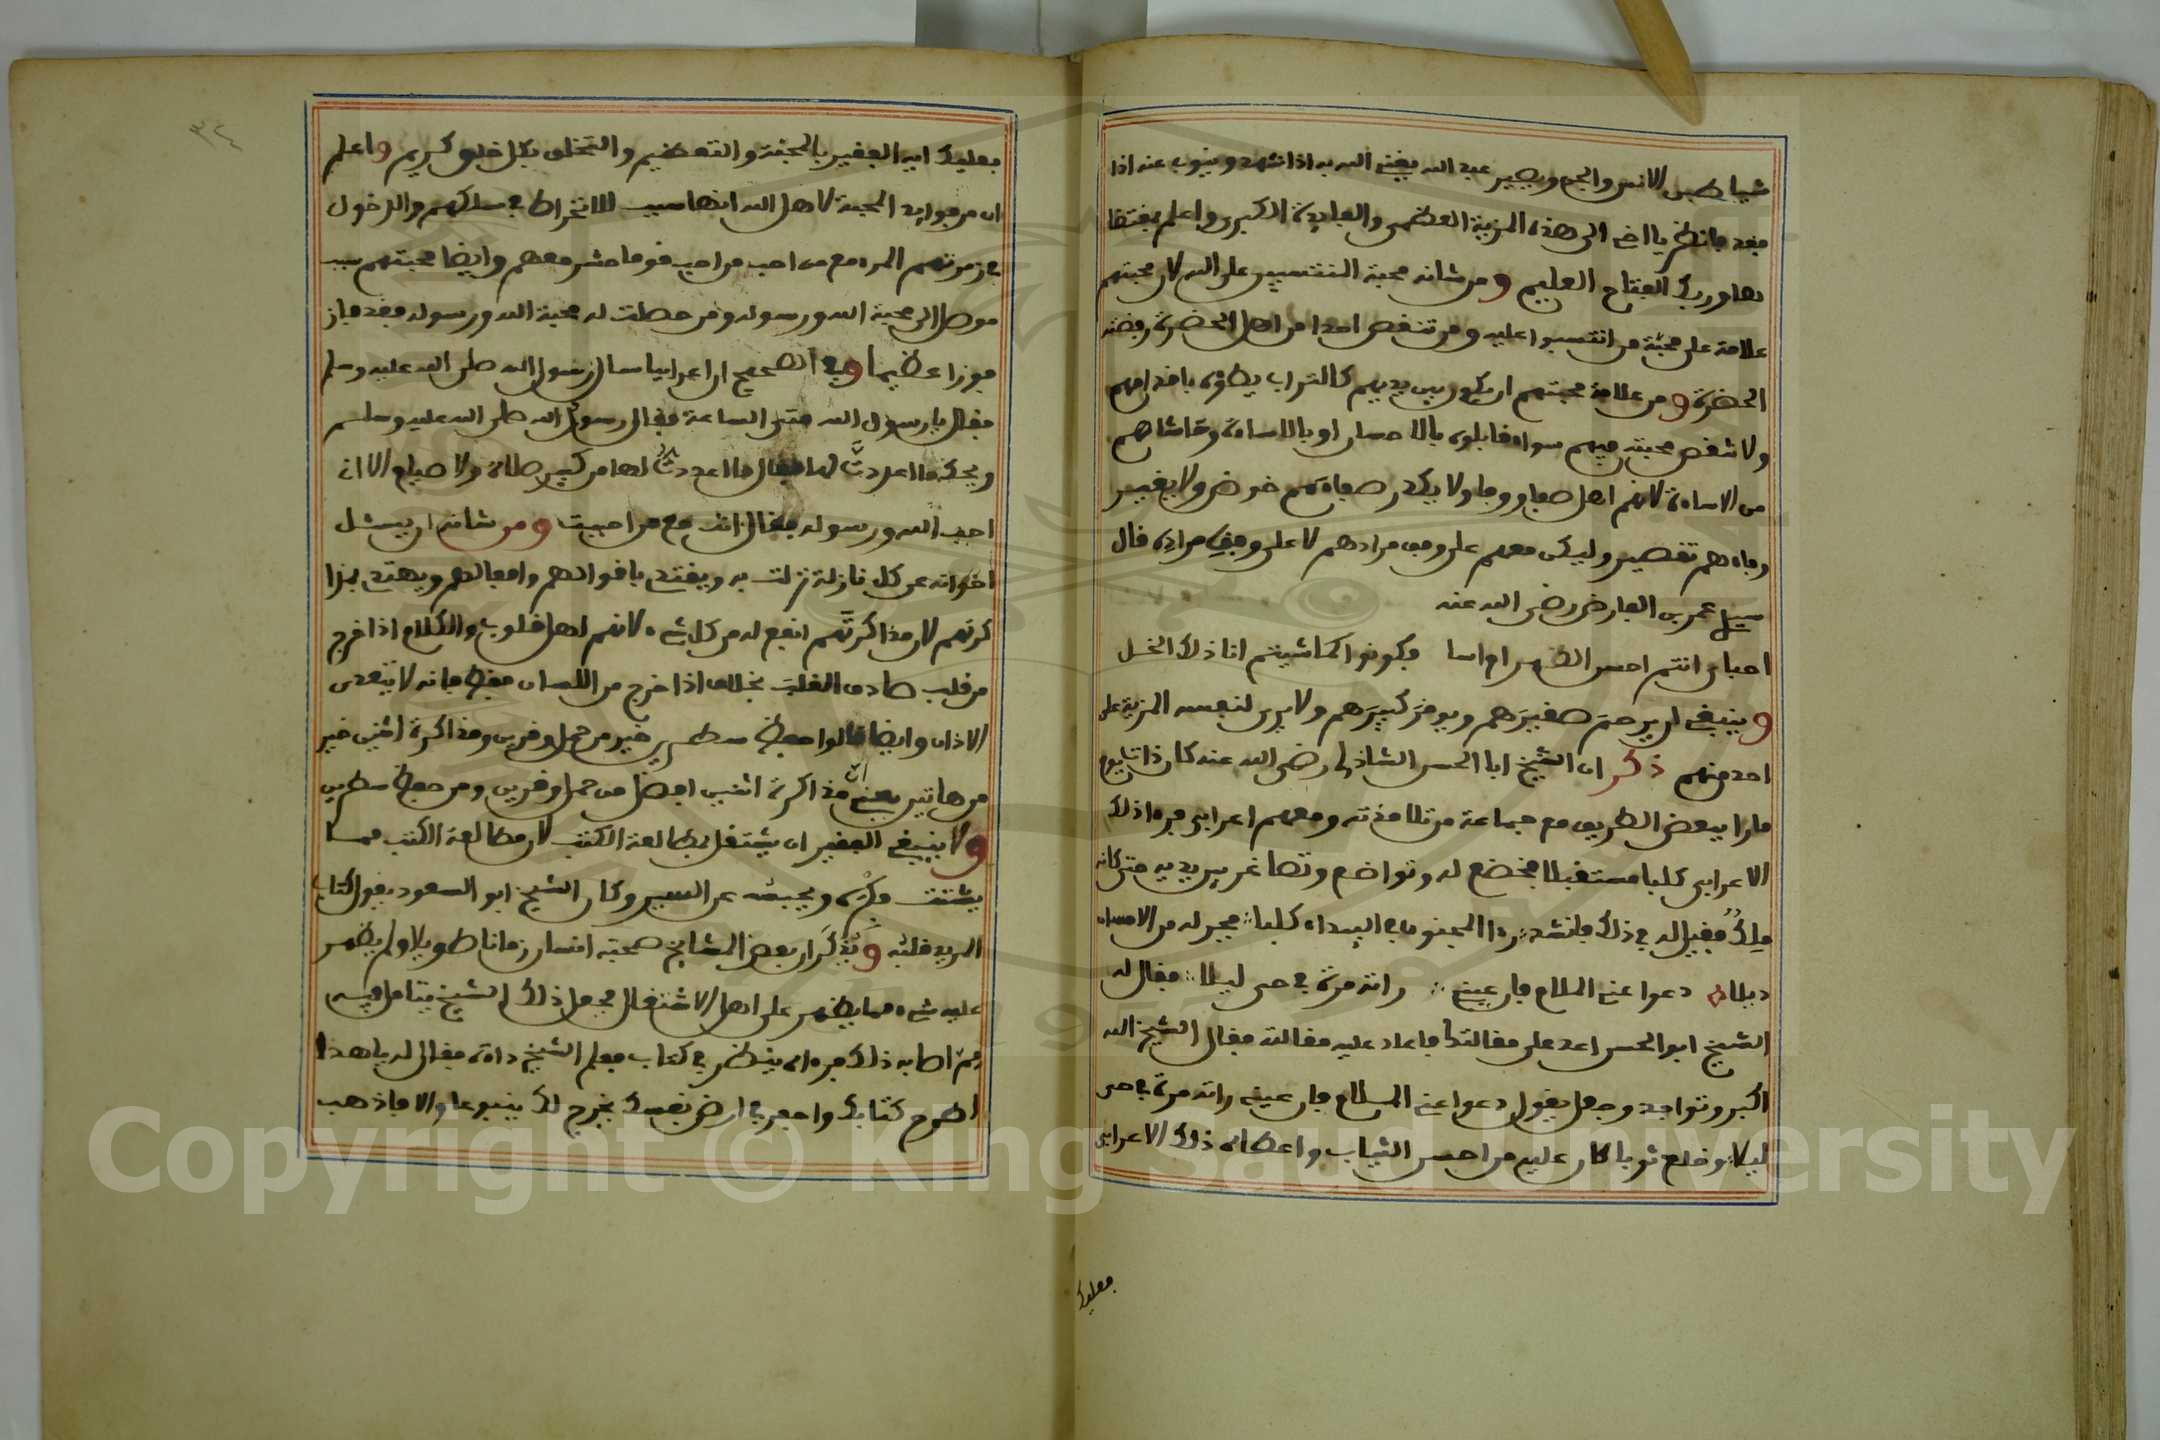 شياطين الانس والجن ويصير عبد الله يغني الله به اذا شهد وينوب عنه اذا
فقد فانظر يا اخي الى هذه المزية العظمى والفايدة الكبرى واعلم بمقتضا
ها وربك الفتاح العليم ومن شانه محبة المنتسبين على الله لان محبتهم
علامة على محبة من انتسبوا عليه ومن تنقص احدا من اهل الحضرة رفضته
الحضرة ومن علامة محبتهم ان يكون بين يديهم كالتراب يطؤه باقدامهم
ولا تنقص محبته فيهم سواء قابلوه بالاحسان او بالاساءة وحاشاهم
من الاساءة لانهم اهل صفا ووفا ولا يكدر صفاءهم خوض ولا يغير
وفاءهم تقصير وليكن معهم على وفق مرادهم لا على وفق مراده قال
سيدي عمر بن الفارض رضي الله عنه
احباي انتم احسن الدهر ام اسا فكونوا كما شيتم انا ذلك الخل
وينبغي ان يرحم صغيرهم ويوقر كبيرهم ولا يرى لنفسه المزية على
احد منهم ذكر ان الشيخ ابا الحسن الشاذلي رضي الله عنه كان ذات يوم
مارا ببعض الطريق مع جماعة من تلامذته ومعهم اعرابي فرءا ذلك
الاعرابي كلبا مستقبلا فخضع له وتواضع وتصاغر بين يديه حتى كانه
ملك فقيل له في ذلك فانشد راا المجنون في البيداء كلبا فجر له من الاحسان
ذيلا دعوا عني الملام فان عيني راته مرة في حي ليلا فقال له
الشيخ ابو الحسن اعد على مقالتك فاعاد عليه مقالته فقال الشيخ الله
اكبر وتواجد وجعل يقول دعوا عني الملام فان عيني راته مرة في حي
ليلا وخلع ثوبا كان عليه من احسن الثياب واعطاه ذلك الاعرابي
فعليك
فعليك ايها الفقير بالمحبة والتعظيم والتخلق بكل خلق كريم واعلم
ان من فوايد المحبة لاهل الله انها سبب للانخراط في سلكهم والدخول
في زمرتهم المرء مع من احب من احب قوما حشر معهم وايضا محبتهم سبب
موصل الى محبة الله ورسوله ومن حصلت له محبة الله ورسوله فقد فاز
فوزا عظيما وفي الصحيح ان اعرابيا سال رسول الله صلى الله عليه وسلم
فقال يا رسول الله متى الساعة فقال رسول الله صلى الله عليه وسلم
ويحك ما اعددت لها فقال ما اعددت لها من كبير صلاة ولا صيام الا اني
احب الله ورسوله فقال انت مع من احببت ومن شانه ان يسئل
اخوانه عن كل نازلة نزلت به ويقتد باقوالهم وافعالهم ويهتد بمذا
كرتهم لان مذاكرتهم انفع له من كل شيء لانهم اهل قلوب والكلام اذا خرج
من قلب صادف القلب بخلاف اذا خرج من اللسان فقط فانه لا يتعدى
الاذان وايضا قالوا حفظ سطرين خير من حمل وقرين ومذاكرة اثنين خير
من هاتين يعني ان مذاكرة اثنين افضل من حمل وقرين ومن حفظ سطرين
ولا ينبغي للفقير ان يشتغل بمطالعة الكتب لان مطالعة الكتب مما
يشتت فكره ويحبسه عن السير وكان الشيخ ابو السعود يقول كتاب
المريد قلبه ويذكر ان بعض المشايخ صحبه انسان زمانا طويلا ولم يظهر
عليه شيء مما يظهر على اهل الاشتغال فجعل ذلك الشيخ يتامل فيه
مم اصابه ذلك فرءاه ينظر في كتاب فعلم الشيخ داءه فقال له يا هذا
اطرح كتابك واحفر في ارض نفسك يخرج لك ينبوعا والا فاذهب
Copyright © King Saud University